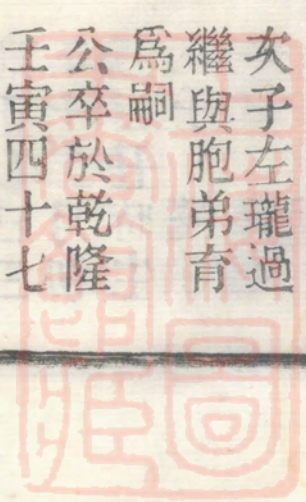 次子左瓏過
繼與胞弟育
爲嗣
公卒於乾隆
壬寅四十七